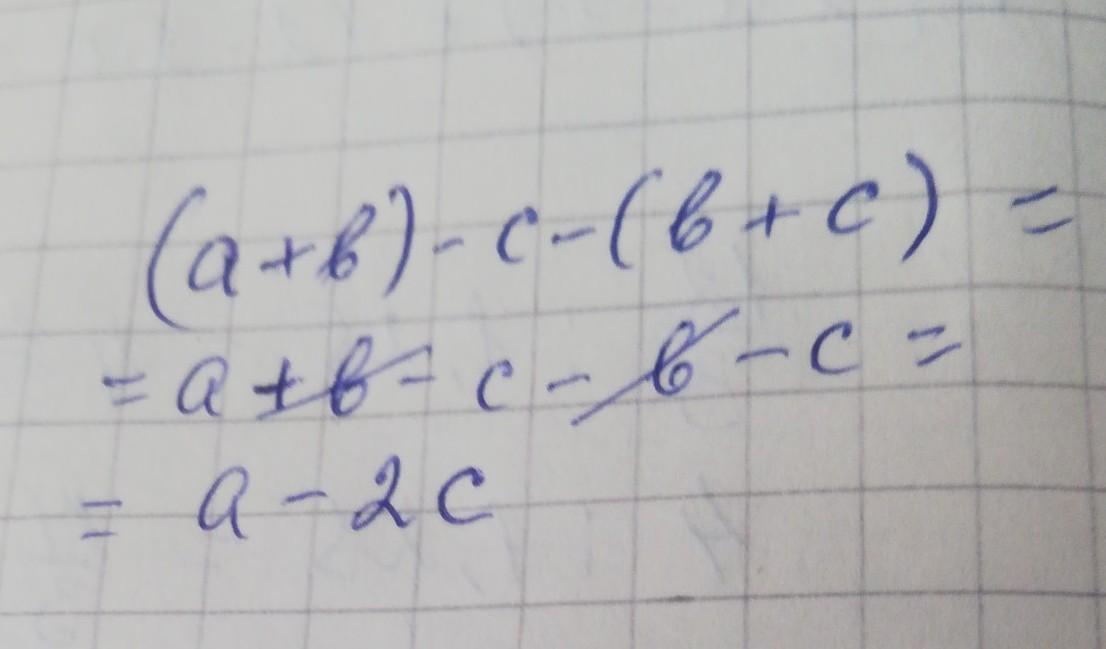 (a+b)-c-(b+c)=
=a+b-c-b-c=
=a-2c